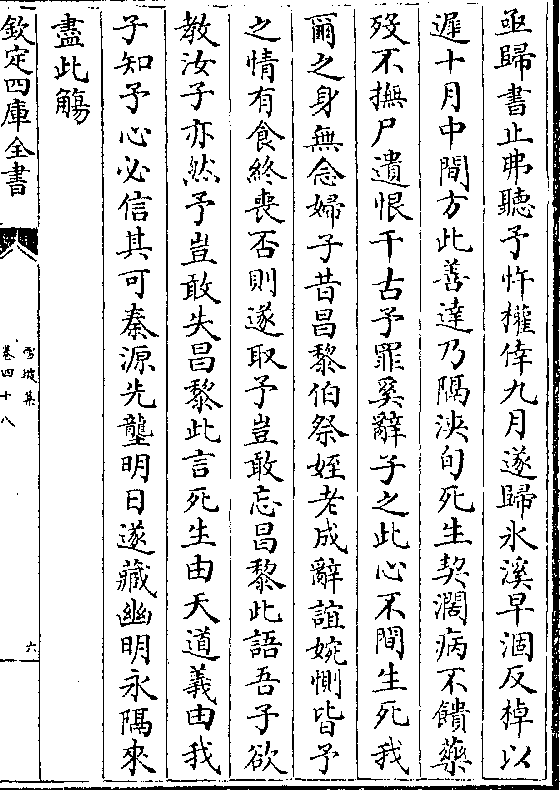 亟歸書止弗聽予忤權倖九月遂歸氷溪早涸反棹以
遲十月中間方此善達乃隔浹旬死生契濶病不饋藥
歿不撫尸遺恨千古予罪奚辭子之此心不間生死我
爾之身無念婦子昔昌黎伯祭姪老成辭誼婉惻皆予
之情有食終喪否則遂取予豈敢忘昌黎此語吾子欲
教汝子亦然予豈敢失昌黎此言死生由天道義由我
子知予心必信其可秦源先壟明日遂藏幽明永隔來
盡此觴
欽定四庫全書
雪坡集
卷四十八
六